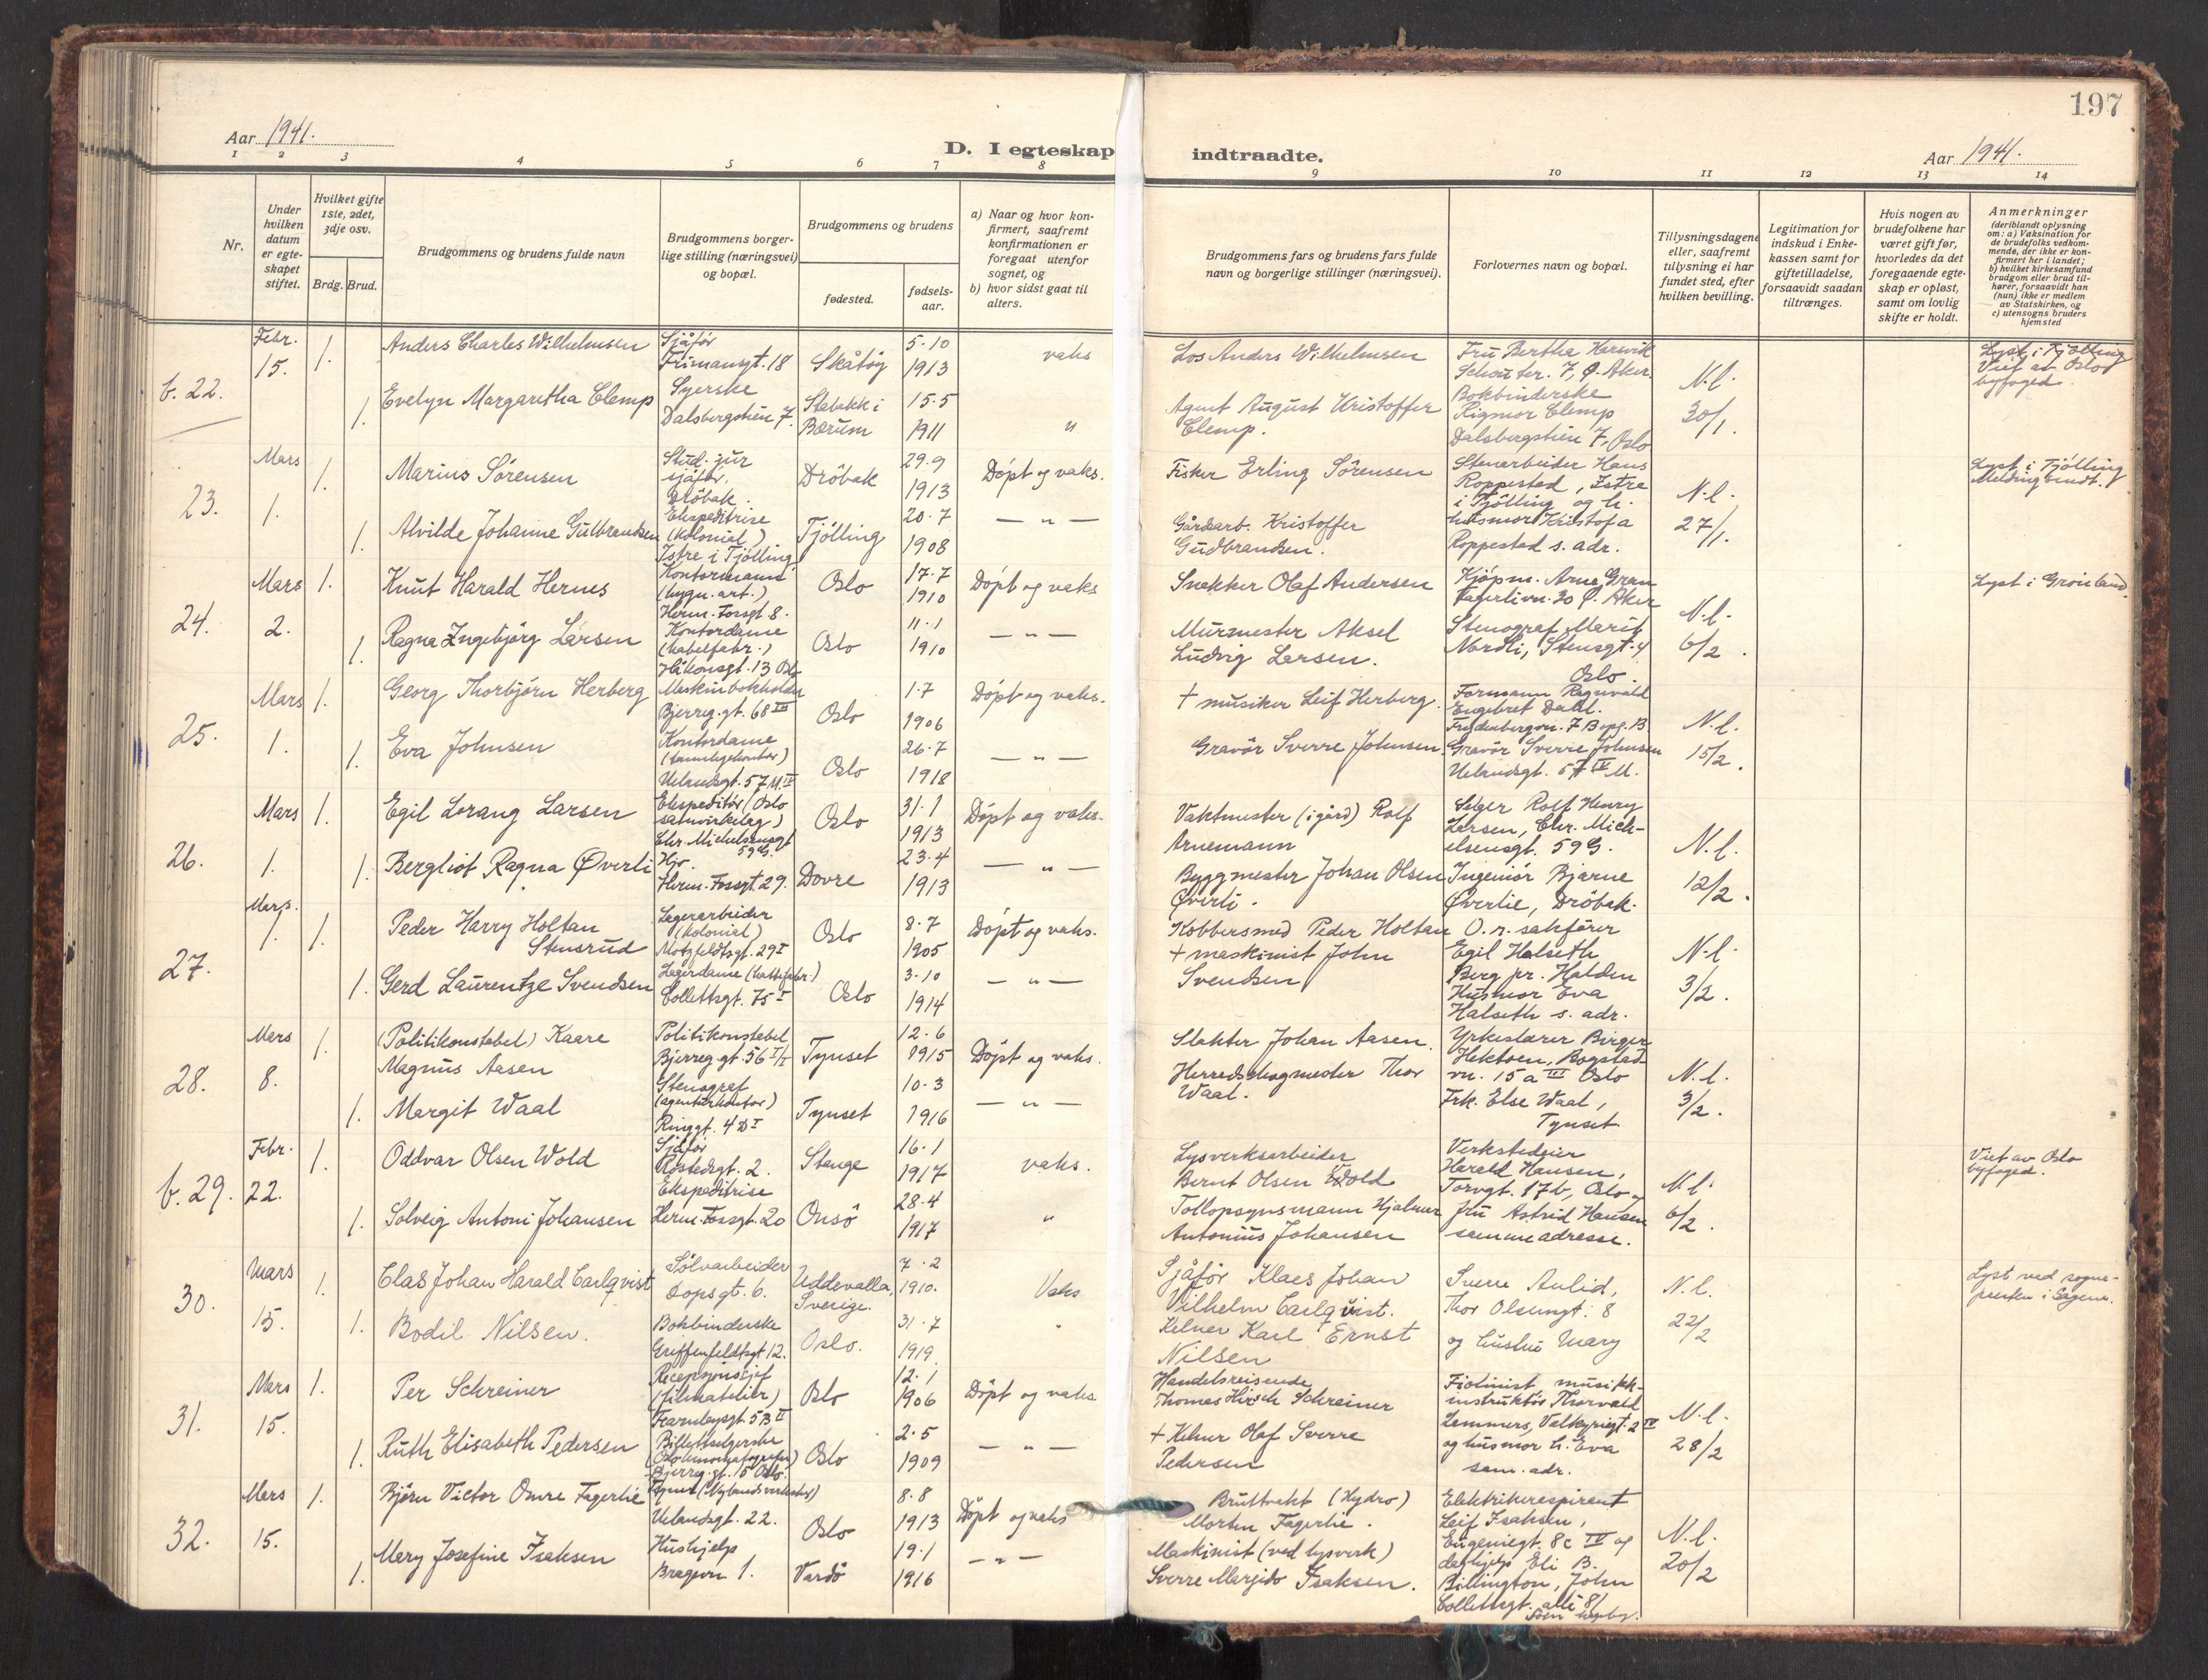 197
Aar 1941.
D. I egteskap indtraadte.
Aar 1941.
1 2 3 4 5 6 7 8 9 10 11 12 13 14
Nr.
Under hvilken datum er egteskapet stiftet.
Hvilket gifte 1ste, 2det, 3dje osv.
Brdg. Brud.
Brudgommens og brudens fulde navn
Brudgommens borgerlige stilling (næringsvei) og bopæl.
Brudgommens og brudens
fødested.
fødselsaar.
a) Naar og hvor konfirmert, saafremt konfirmationen er foregaat utenfor sognet, og
b) hvor sidst gaat til alters.
Brudgommens fars og brudens fars fulde navn og borgerlige stillinger (næringsvei).
Forlovernes navn og bopæl.
Tillysningsdagene eller, saafremt tillysning ei har fundet sted, efter hvilken bevilling.
Legitimation for indskud i Enkekassen samt for giftetilladelse, forsaavidt saadan tiltrænges.
Hvis nogen av brudefolkene har været gift før, hvorledes da det foregaaende egteskap er opløst, samt om lovlig skifte er holdt.
Anmerkninger
(deriblandt oplysning om: a) Vaksination for de brudefolks vedkommende, der ikke er konfirmert her i landet;
b) hvilket kirkesamfund brudgom eller brud tilhører, forsaavidt han (hun) ikke er medlem av Statskirken, og
c) utensogns bruders hjemsted
b. 22. Febr. 15. 1. Anders Charles Wilhelmsen Sjåfør Frimansgt. 18 Skåtøy 5.10 1913 vaks Los Anders Wilhelmsen Fru Bertha
7, Ø. Aker. N.l. 30/1. Lyst i Tjølling Viet av Oslo byfoged.
1. Evelyn Margaretha Clemp Syerske Dalsbergstien 7. Stabekk i Bærum 15.5 1911 " Agent August Kristoffer Clemp. Bokbinderske Rigmor Clemp Dalsbergstien 7, Oslo
23. Mars 1. 1. Marius Sørensen Stud. jur sjåfør. Drøbak. Drøbak 29.9 1913 Døpt og vaks. Fisker Erling Sørensen Stenarbeider Hans Roppestad, Istre i Tjølling og h. N.l. 27/1. Lyst i Tjølling Melding sendt.
1. Alvilde Johanne Gulbrandsen Ekspeditrise (Kolonial) Istre i Tjølling Tjølling 20.7 1908 — " — Gårdsarb. Kristoffer Gudbrandsen. husmor Kristofa Roppestad s. adr.
24. Mars 2. 1. Knut Harald Hernes Kontormann (bygn. art.) Herm. Fossgt 8. Oslo 17.7 1910 Døpt og vaks Snekker Olaf Andersen Kjøpm. Arne Gran Fagerlivn. 30 Ø. Aker N.l. 6/2. Lyst i Grønland.
1. Ragna Ingebjørg Larsen Kontordame (Kabelfabr.) Håkonsgt. 13 Oslo Oslo 11.1 1910 — " — Murmester Aksel Ludvig Larsen. Stenograf Marit Nordli, Stensgt. 4 Oslo.
25. Mars 1. 1. Georg Thorbjørn Herberg Maskinbokholder Bjerreg.gt. 68 III Oslo 1.7 1906 Døpt og vaks. + musiker Leif Herberg. Formann Ragnvald Engebret Dahl. 7 Bopg. B N.l. 15/2.
1. Eva Johnsen Kontordame (tannlegekontor) Uelandsgt. 57 M. IV Oslo 26.7 1918 — " — Gravør Sverre Johnsen. Gravør Sverre Johnsen Uelandsgt. 57 IV M.
26. Mars 1. 1. Egil Lorang Larsen Ekspeditør (Oslo samvirkelag) Chr. Michelsensgt 59 G. Oslo 31.1 1913 Døpt og vaks. Vaktmester (i gård) Rolf Arnemann Selger Rolf Henry Larsen, Chr. Michelsensgt. 59 G. N.l. 12/2.
1. Bergliot Ragna Øverli Hjv. Herm. Fossgt. 29. Dovre 23.4 1913 — " — Byggmester Johan Olsen Øverli. Ingeniør Bjarne Øverlie, Drøbak.
27. Mars. 1. 1. Peder Harry Holtan Stensrud Lagerarbeider (Kolonial) Motzfeldtsgt. 29 I Oslo 8.7 1905 Døpt og vaks. Kobbersmed Peder Holtan O.r. sakfører Egil Halseth Berg pr. Halden N.l. 3/2.
1. Gerd Laurentze Svendsen Lagerdame (hattefabr.) Collettsgt. 75 I Oslo 3.10 1914 — " — + maskinist John Svendsen Husmor Eva Halseth s. adr.
28. Mars 8. 1. (Politikonstabel) Kaare Magnus Aasen Politikonstabel Bjerreg.gt. 56 Tynset 12.6 1915 Døpt og vaks. Slakter Johan Aasen. Yrkeslærer Birger Hektoen, Bogstadvn. 15 a III Oslo N.l. 3/2.
1. Margit Waal Stenograf (agenturkontor) Ringgt. 4 D I Tynset 10.3 1916 — " — Herredskogmester Thor Waal. Frk. Else Waal, Tynset.
b. 29. Febr. 22. 1. Oddvar Olsen Wold Sjåfør Røstedsgt. 2. Stange 16.1 1917 vaks. Lysverksarbeider Bernt Olsen Wold Verkstedeier Harald Hansen, Torvgt. 17b, Oslo og N.l. 6/2. Viet av Oslo byfoged.
1. Solveig Antoni Johansen Ekspeditrise Herm. Fossgt. 20 Onsö 28.4 1917 " Tollopsynsmann Hjalmar Antonius Johansen fru Astrid Hansen samme adresse.
30. Mars 15. 1. Clas Johan Harald Carlqvist Sølvarbeider Dopsgt. 6. Uddevalla, Sverige. 7.2 1910. Vaks Sjåfør Klaes Johan Vilhelm Carlqvist. Sverre Aulid, Thor Olsensgt. 8 N.l. 22/2 Lyst ved sognepresten i Sagene.
1. Bodil Nilsen. Bokbinderske Griffenfeldtsgt 12. Oslo. 31.7 1919 " Kelner Karl Ernst Nilsen og hustru Mary
31. Mars 15. 1. Per Schreiner Recepsjonssjef (filmatelier) Fearnleysgt. 5 B II Oslo 12.1 1906 Døpt og vaks Handelsreisende Thomas Hirsch Schreiner Fiolinist musikkinstruktør Thorvald Lammers, Valkyriegt. 2 IV N.l. 28/2
1. Ruth Elisabeth Pedersen Billettselgerske (Oslo kinematografer) Bjerreg.gt. 15 Oslo. Oslo 2.5 1909 — " — + Kelner Olaf Sverre Pedersen og husmor h. Eva sam. adr.
32. Mars 15. 1. Bjørn Victor Omre Fagerlie (Nylands verksted) Uelandsgt. 22. Oslo 8.8 1913 Døpt og vaks (Hydro) Morten Fagerlie. Elektrikeraspirant Leif Isaksen, Eugeniegt. 8c IV og N.l. 20/2
1. Mary Josefine Isaksen Hushjelp Bragevn 1. Vardö 19.1 1916 — " — Maskinist (ved lysverk) Sverre Isaksen. daghjelp Eli B. Billington, John Collettsgt. allé 81